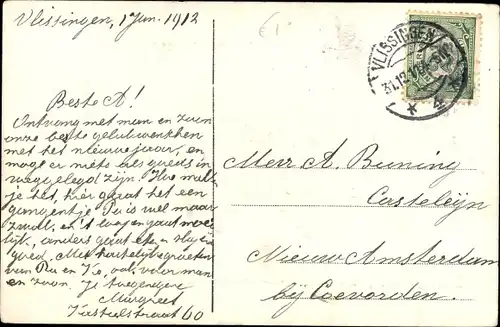 Vlissingen, 1 Jan. 1912
Beste A!
Ontvang met man en zoon
onze beste gelukwenschen
met het nieuwe jaar, en
moge er niets als goeds in
weggelegd zijn. Hoe
je het, hier gaat het een
gangetje. Pa is wel maar
zwak, en 't loopen gaat moei
lijk, anders gaat en slapen
goed. Met hartelijke groeten
van Pa en ook voor man
en zoon. Je toegenegen
Margreet
60
VLISSINGEN
31.12.11
Mevr A. Bruning
Casteleijn
Nieuw Amsterdam
bij Coevorden.